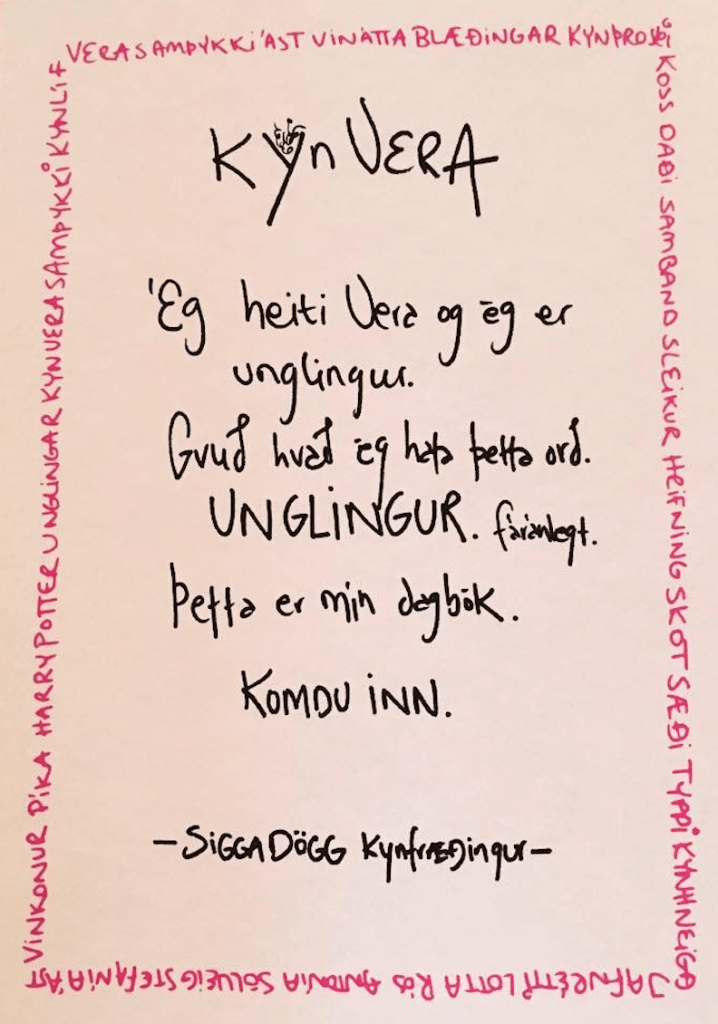 VERA SAMÞYKKI ÁST VINÁTTA BLÆÐINGAR KYNÞROSKI
KOSS DAÐI SAMBAND SLEIKUR HEFNING SKOT SÆÐI TYPPI KYNHNEIGÐ
KYNVERA
Ég heiti Vera og ég er
unglingur.
Gvuð hvað ég hata þetta orð.
UNGLINGUR. fáránlegt.
Þetta er mín dagbók.
KOMDU INN.
-SIGGA DÖGG kynfræðingur-
JAFNRÉTTI LOTTA RÓS ANTONÍA SÓLVEIG STEFANÍA ÁST
VINKONUR PÍKA HARRY POTTER UNGLINGAR KYNVERA SAMÞYKKI KYNLÍF